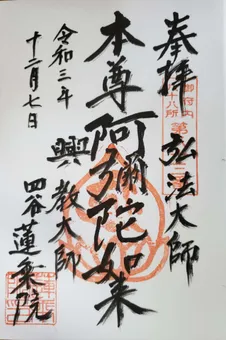 奉拝 弘法大師
御府内
十八所
第
本尊阿彌陀如来
興教大師
四谷蓮乗院
令和三年
十二月七日